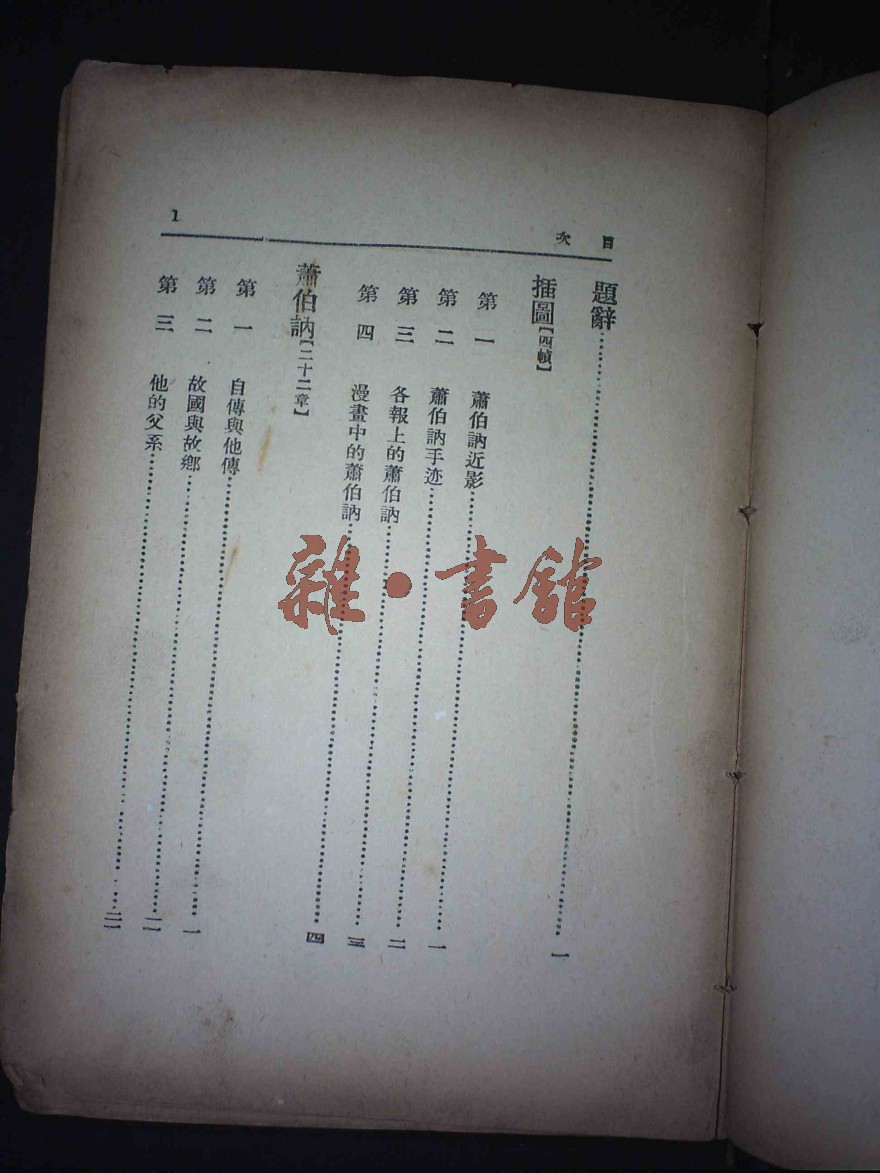 目次
1
題辭……一
插圖【四幀】
第一 蕭伯訥近影……一
第二 蕭伯訥手迹……二
第三 各報上的蕭伯訥……三
第四 漫畫中的蕭伯訥……四
蕭伯訥【二十二章】
第一 自傳與他傳……一
第二 故國與故鄉……
第三 他的父系……
雜·書館